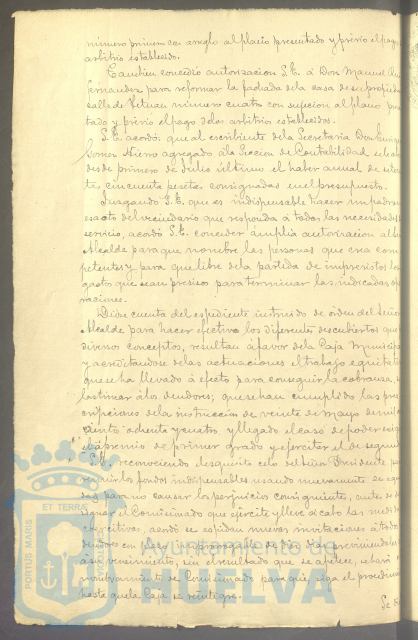 número primero con arreglo al plano presentado y previo el pago
arbitrio establecido.
Tambien concedió autorizacion S.E. á Don Manuel
Fernandez para reformar la fachada de la casa de su propiedad
calle de Tetuan número cuatro con sujecion al plano
tado y previo el pago de los arbitrios establecidos.
S.E. acordó que al escribiente de la Secretaria Don
agregado á la Seccion de Contabilidad
desde primero de Julio último el haber anual de
cincuenta pesetas consignadas en el presupuesto.
Juzgando S.E. que es indispensable hacer un padron
exacto del vecindario que responda á todas las necesidades
servicio, acordó S.E. conceder ámplia autorizacion al
Alcalde para que nombre las personas que crea com
petentes y para que libre de la partida de imprevistos los
gastos que sean precisos para terminar las indicadas ope
raciones.
Dióse cuenta del espediente instruido de órden del Señor
Alcalde para hacer efectivo los diferentes descubiertos que
diversos conceptos, resultan á favor de la Caja Municipal
y acreditandose de las actuaciones el trabajo
que se ha llevado á efecto para conseguir la cobranza, sin
lastimar á los deudores; que se han cumplido las pres
cripciones de la instruccion de veinte de Mayo de mil
ciento ochenta y cuatro y llegado el caso de poder
el apremio de primer grado y ejercitar el de segundo
S.E. reconociendo el esquisito celo del Señor Presidente
los fondos indispensables usando nuevamente de
para no causar los perjuicios consiguientes, antes de de
signar el Comisionado que ejercite y lleve á cabo las medidas
ejecutivas, acordó se espidan nuevas invitaciones á todos
deudores con plazo improrrogable de dias
su vencimiento, sin el resultado que se apetece, se hará
nombramiento de Comisionado para que siga el procedimiento
hasta que la Caja se reintegre.
PORTUS MARIS
ET TERRÆ
Ayuntamiento de
HUELVA